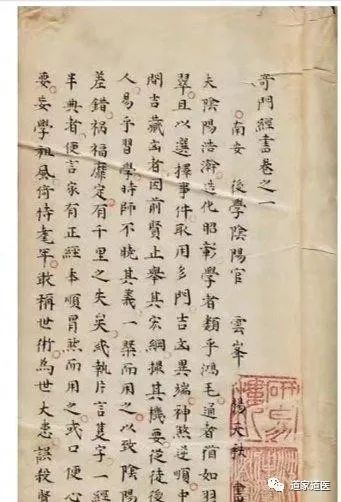 奇門經書卷之一
南安 後學陰陽官 雲峯 陽大 書
夫陰陽浩瀚造化昭彰學者類乎鴻毛通者猶如羽
翠且以選擇事件取用多門吉凶異端神煞逆順中
間吉藏凶者因前賢止舉其宏綱撮其機要從徒後
人易乎習學時師不曉其義一槩而用之以致陰陽
差錯禍福靡定有千里之失矣或執片言隻字一經
半典者便言家有正經本順冒煞而用之或口便心
要妄學祖風倚恃耄年敢稱世術為世大患誤殺賢
道家道医